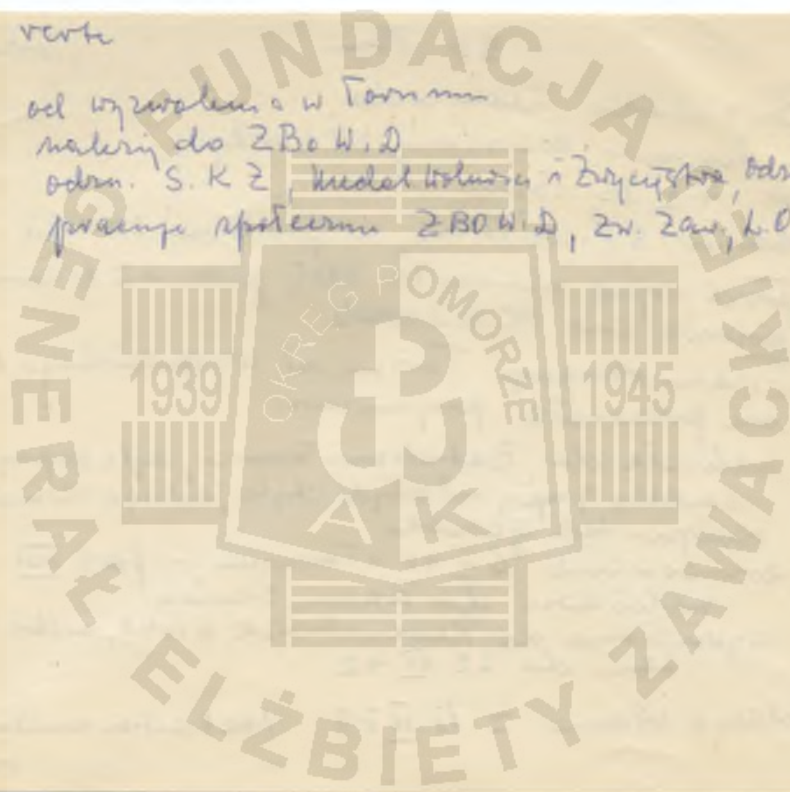 verte
od wyzwolenia w Toruniu
należy do ZBoW.D
odzn. S.K Z, Medal Wolności i Zwycięstwa, odz
pracuje społecznie ZBOW.D, Zw. Zaw, L.O
FUNDACJA
GENERAŁ ELŻBIETY ZAWACKIEJ
OKRĘG POMORZE
1939
1945
A K